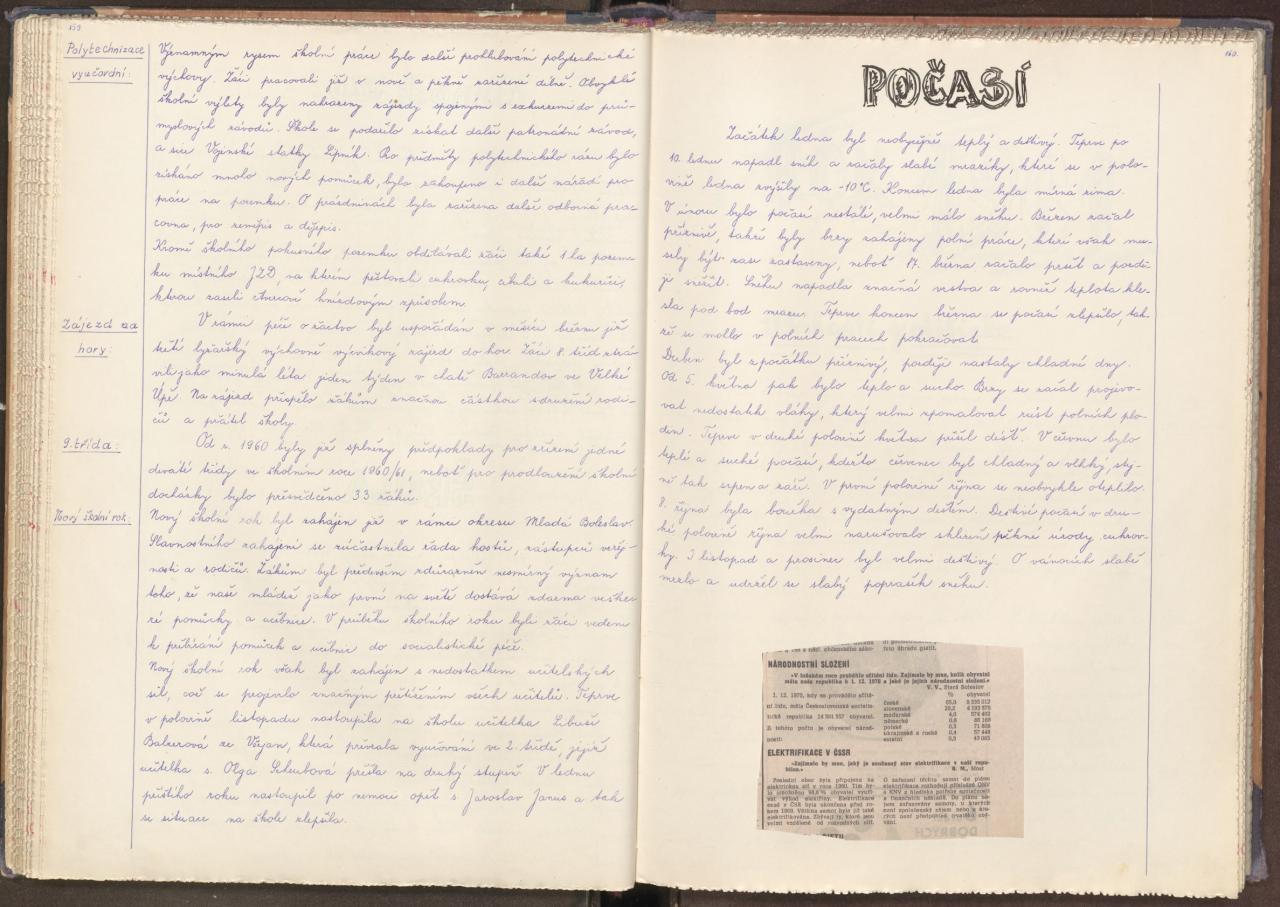 159
Polytechnizace
vyučování:
Významným rysem školní práce bylo další prohlubování polytechnické
výchovy. Žáci pracovali již v nové a pěkně zařízené dílně. Obvyklé
školní výlety byly nahrazeny zájezdy spojenými s exkurzemi do prů-
myslových závodů. Škole se podařilo získat další patronátní závod,
a sice Vojenské statky Lipník. Pro předměty polytechnického rázu bylo
získáno mnoho nových pomůcek, bylo zakoupeno i další nářadí pro
práce na pozemku. O prázdninách byla zařízena další odborná pra-
covna, pro zeměpis a dějepis.
Kromě školního pokusného pozemku obdělávali žáci také 1 ha pozem-
ku místního JZD, na kterém pěstovali cukrovku, cibuli a kukuřici,
kterou zaseli čtvercově hnízdovým způsobem.
Zájezd na
hory:
V rámci péče o žactvo byl uspořádán v měsíci březnu již
třetí lyžařský výchovně výcvikový zájezd do hor. Žáci 8. tříd strá-
vili jako minulá léta jeden týden v chatě Barrandov ve Velké
Úpě. Na zájezd přispělo žákům značnou částkou sdružení rodi-
čů a přátel školy.
9. třída:
Od r. 1960 byly již splněny předpoklady pro zřízení jedné
deváté třídy ve školním roce 1960/61, neboť pro prodloužení školní
docházky bylo přesvědčeno 33 žáků.
Nový školní rok:
Nový školní rok byl zahájen již v rámci okresu Mladá Boleslav.
Slavnostního zahájení se zúčastnila řada hostů, zástupců veřej-
nosti a rodičů. Žákům byl především zdůrazněn nesmírný význam
toho, že naše mládež jako první na světě dostává zdarma vešker
ré pomůcky a učebnice. V průběhu školního roku byli žáci vedeni
k přibírání pomůcek a učebnic do socialistické péče.
Nový školní rok však byl zahájen s nedostatkem učitelských
sil, což se projevilo značným přetížením všech učitelů. Teprve
v polovině listopadu nastoupila na školu učitelka Libuše
ze která převzala vyučování ve 2. třídě, jejíž
učitelka s. Olga přešla na druhý stupeň. V lednu
příštího roku nastoupil po nemoci opět s. Jaroslav Janus a tak
se situace na škole zlepšila.
160.
POČASÍ
Začátek ledna byl neobyčejně teplý a deštivý. Teprve po
10. lednu napadl sníh a začaly slabé mrazíky, které se v polo-
vině ledna zvýšily na -10°C. Koncem ledna byla mírná zima.
V únoru bylo počasí nestálé, velmi málo sněhu. Březen začal
příznivě, takže byly brzy zahájeny polní práce, které však mu-
sely být zase zastaveny, neboť 17. března začalo pršet a pozdě-
ji sněžit. Sněhu napadla značná vrstva a rovněž teplota kle-
sla pod bod mrazu. Teprve koncem března se počasí zlepšilo, tak-
že se mohlo v polních pracech pokračovat
Duben byl zpočátku příznivý, později nastaly chladné dny.
Od 5. května pak bylo teplo a sucho. Brzy se začal projevo-
vat nedostatek vláhy, který velmi zpomaloval růst polních plo-
din. Teprve v druhé polovině května přišel déšť. V červnu bylo
teplé a suché počasí, kdežto červenec byl chladný a vlhký, stej-
ně tak srpen a září. V první polovině října se neobvykle oteplilo.
8. října byla bouřka s vydatným deštěm. Deštivé počasí v dru-
hé polovině října velmi narušovalo sklizeň pěkné úrody cukrov-
ky. I listopad a prosinec byl velmi deštivý. O vánocích slabě
mrzlo a udržel se slabý poprašek sněhu.
NÁRODNOSTNÍ SLOŽENÍ
»V loňském roce proběhlo sčítání lidu. Zajímalo by mne, kolik obyvatel
měla naše republika k 1. 12. 1970 a jaké je jejich národnostní složení.«
V. V., Stará Boleslav
1. 12. 1970, kdy se provádělo sčítá-
ní lidu, měla Československá socialis-
tická republika obyvatel.
Z tohoto počtu je obyvatel národ-
nosti:
% obyvatel
české 65,0
slovenské 29,2
maďarské 4,0
německé 0,6
polské 0,5
ukrajinské a ruské 0,4
ostatní 0,3
ELEKTRIFIKACE V ČSSR
»Zajímalo by mne, jaký je současný stav elektrifikace v naší repu-
blice.«
R. M., Most
Poslední obec byla připojena na
elektrickou síť v roce 1960. Tím by-
lo umožněno obyvatel využí-
vat výhod elektřiny. Elektrifikace
obcí v ČSR byla ukončena před ro-
kem 1960. Většina samot byla již také
elektrifikována. Zbývají ty, které jsou
velmi vzdálené od rozvodných sítí.
O zařazení těchto samot do plánu
elektrifikace rozhodují příslušné ONV
a KNV z hlediska potřeby společnosti
a finančních nákladů. Do plánu ne-
jsou zařazovány samoty, u kterých
není společenský zájem nebo u kte-
rých není předpoklad trvalého obý-
vání.